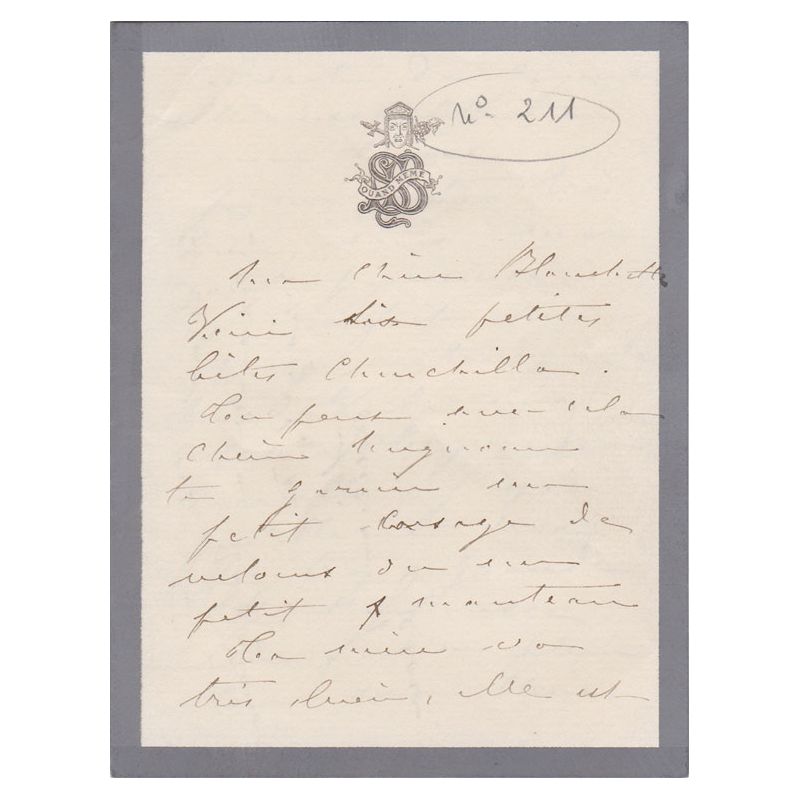 No 211
QUAND MÊME
Ma chère Blanchette
Voici dix petites
bêtes Chinchilla.
Tu peux avec cela
chère mignonne
te garnir un
petit corsage de
velours ou un
petit manteau
Ta mère va
très bien, elle est